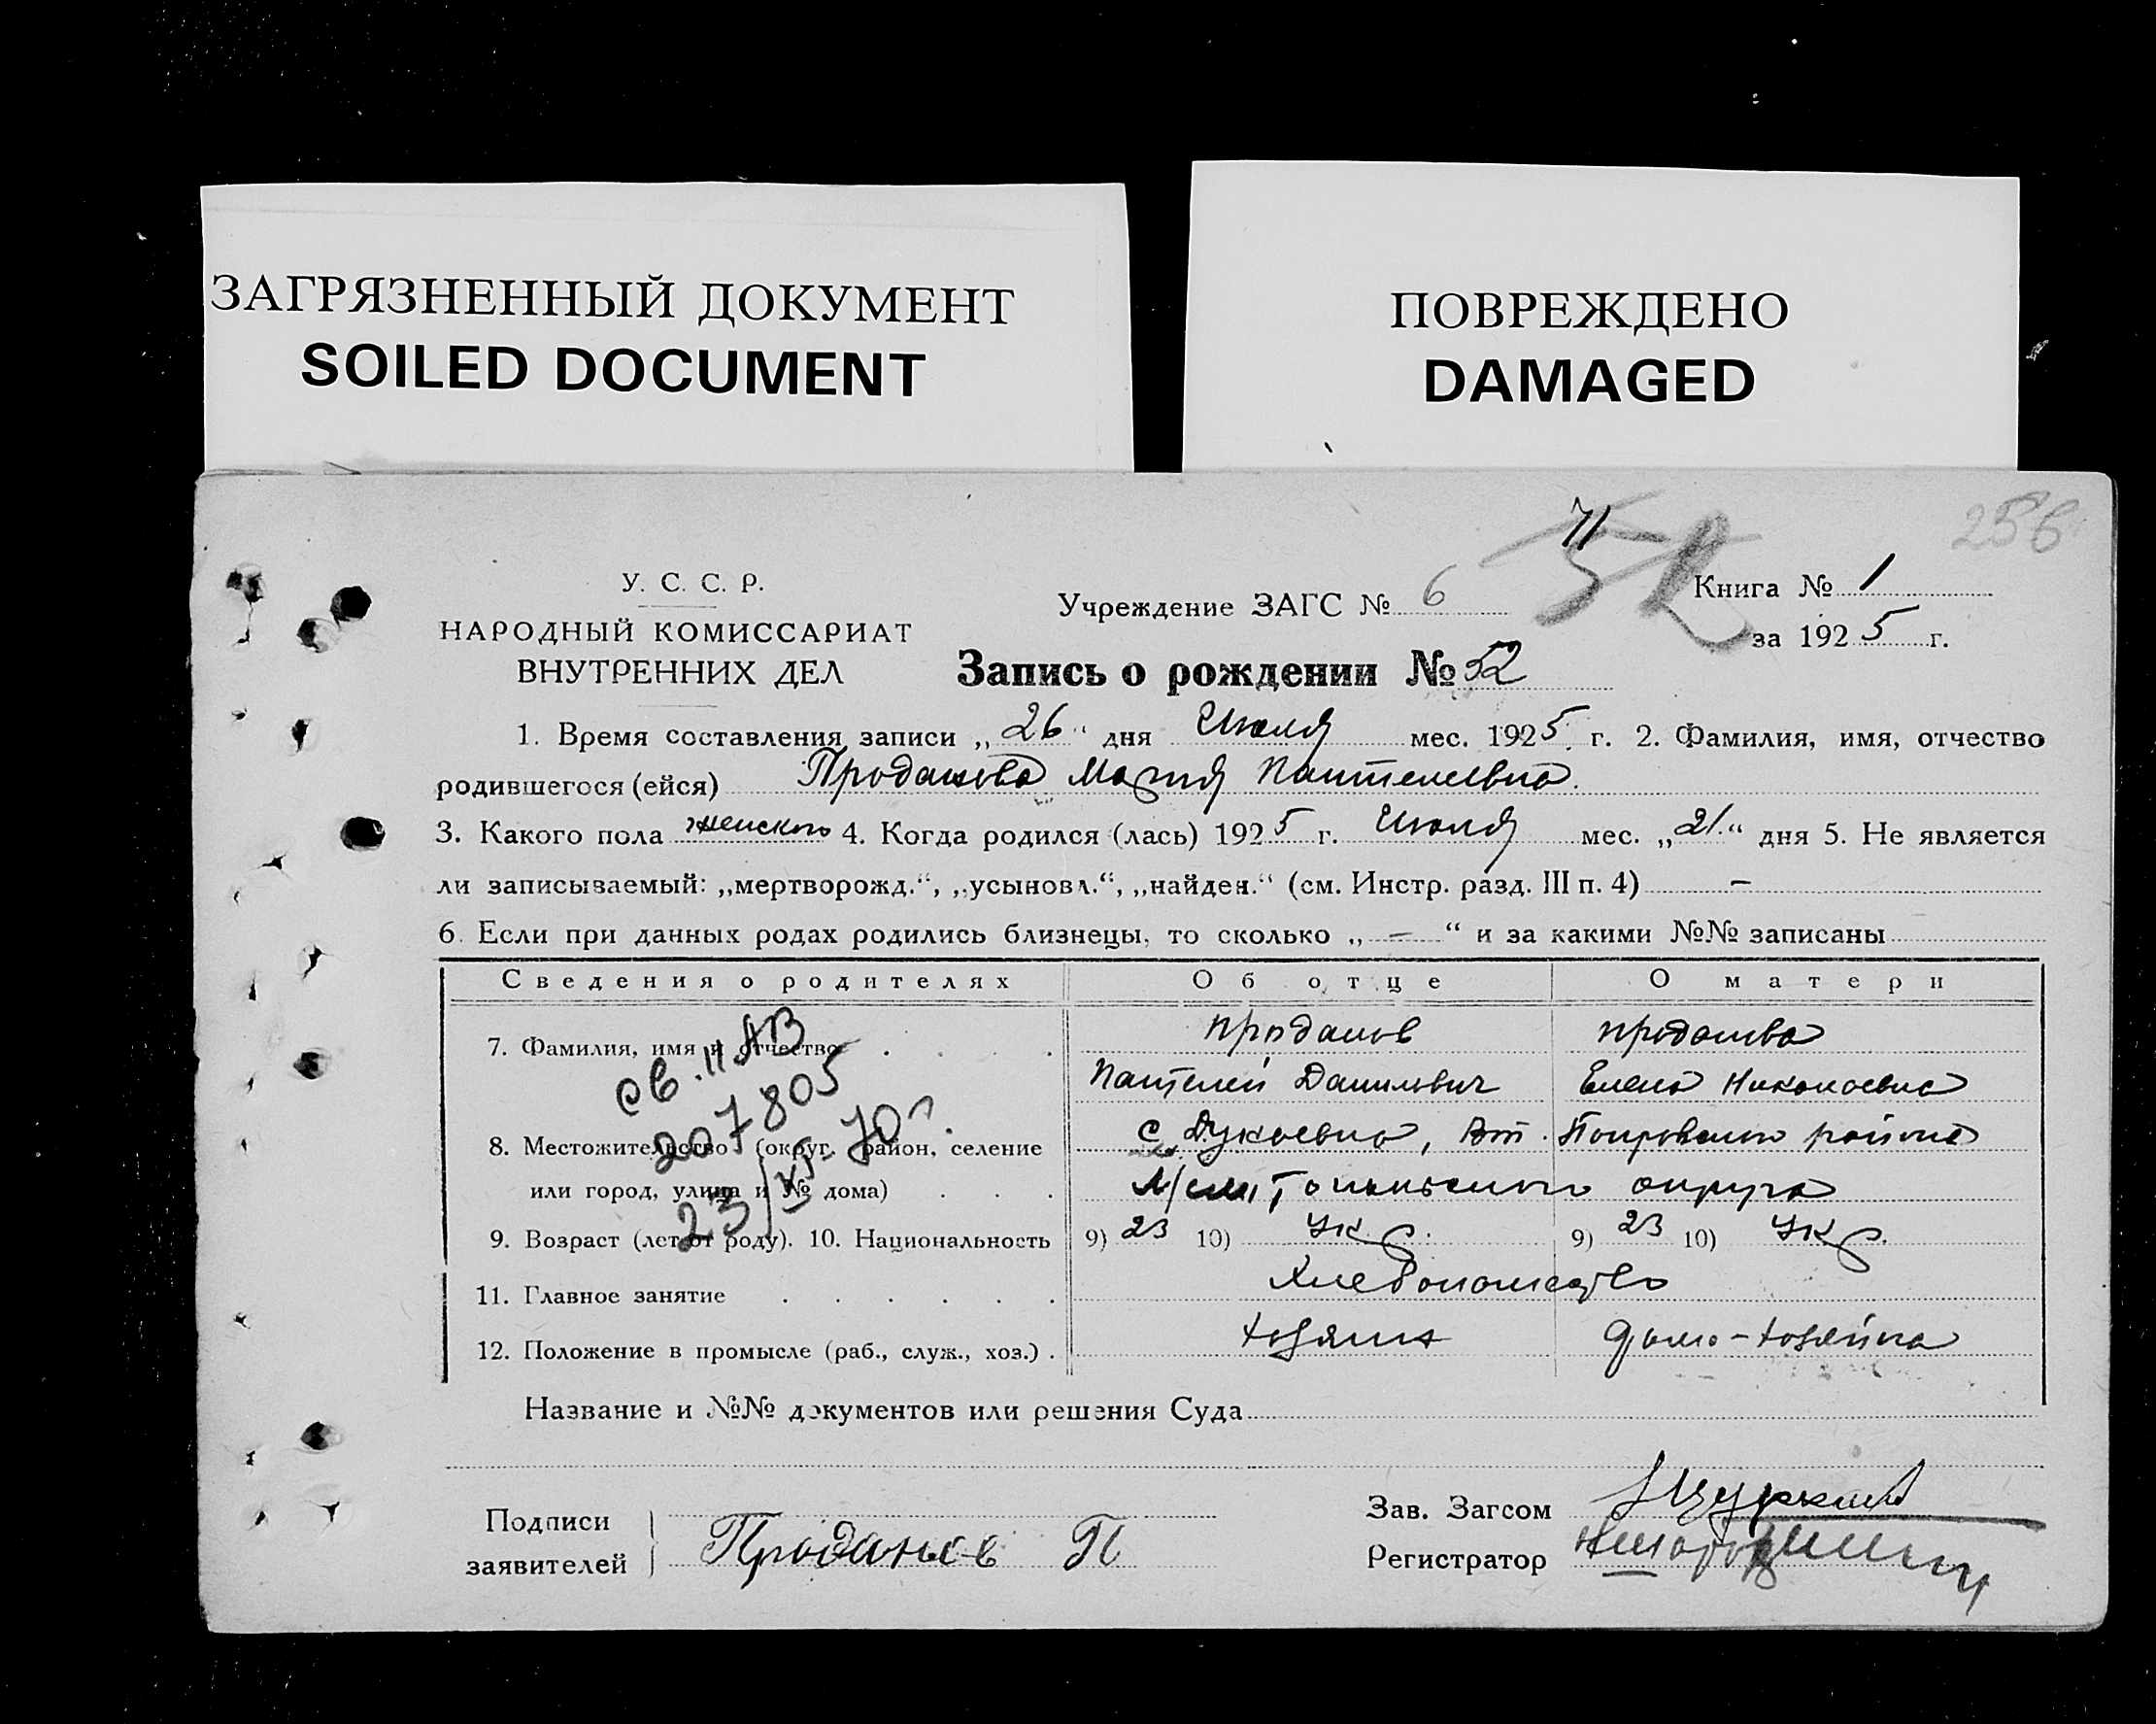 ЗАГРЯЗНЕННЫЙ ДОКУМЕНТ
SOILED DOCUMENT
ПОВРЕЖДЕНО
DAMAGED
71
52
256
У. С. С. Р.
НАРОДНЫЙ КОМИССАРИАТ
ВНУТРЕННИХ ДЕЛ
Учреждение ЗАГС № 6
Книга № 1
за 1925 г.
Запись о рождении № 52
1. Время составления записи „26“ дня Июля мес. 1925 г. 2. Фамилия, имя, отчество
родившегося (ейся) Проданова Мария Пантелевна.
3. Какого пола женского 4. Когда родился (лась) 1925 г. Июля мес. „21“ дня 5. Не является
ли записываемый: „мертворожд.“, „усыновл.“, „найден.“ (см. Инстр. разд. III п. 4) —
6. Если при данных родах родились близнецы, то сколько „—“ и за какими №№ записаны
Сведения о родителях Об отце О матери
7. Фамилия, имя и отчество Проданов Проданова
Пантелей Данилович Елена Николаевна
8. Местожительство (округ, район, селение с. Дунаевка, Вт. Покровского района
или город, улица и № дома) Мелитопольского округа
св. II АВ
207805
23/XI-70г.
9. Возраст (лет от роду). 10. Национальность 9) 23 10) Укр. 9) 23 10) Укр.
11. Главное занятие Хлебопашество
12. Положение в промысле (раб., служ., хоз.) хозяин домо-хозяйка
Название и №№ документов или решения Суда
Подписи
заявителей Проданов П
Зав. Загсом
Регистратор